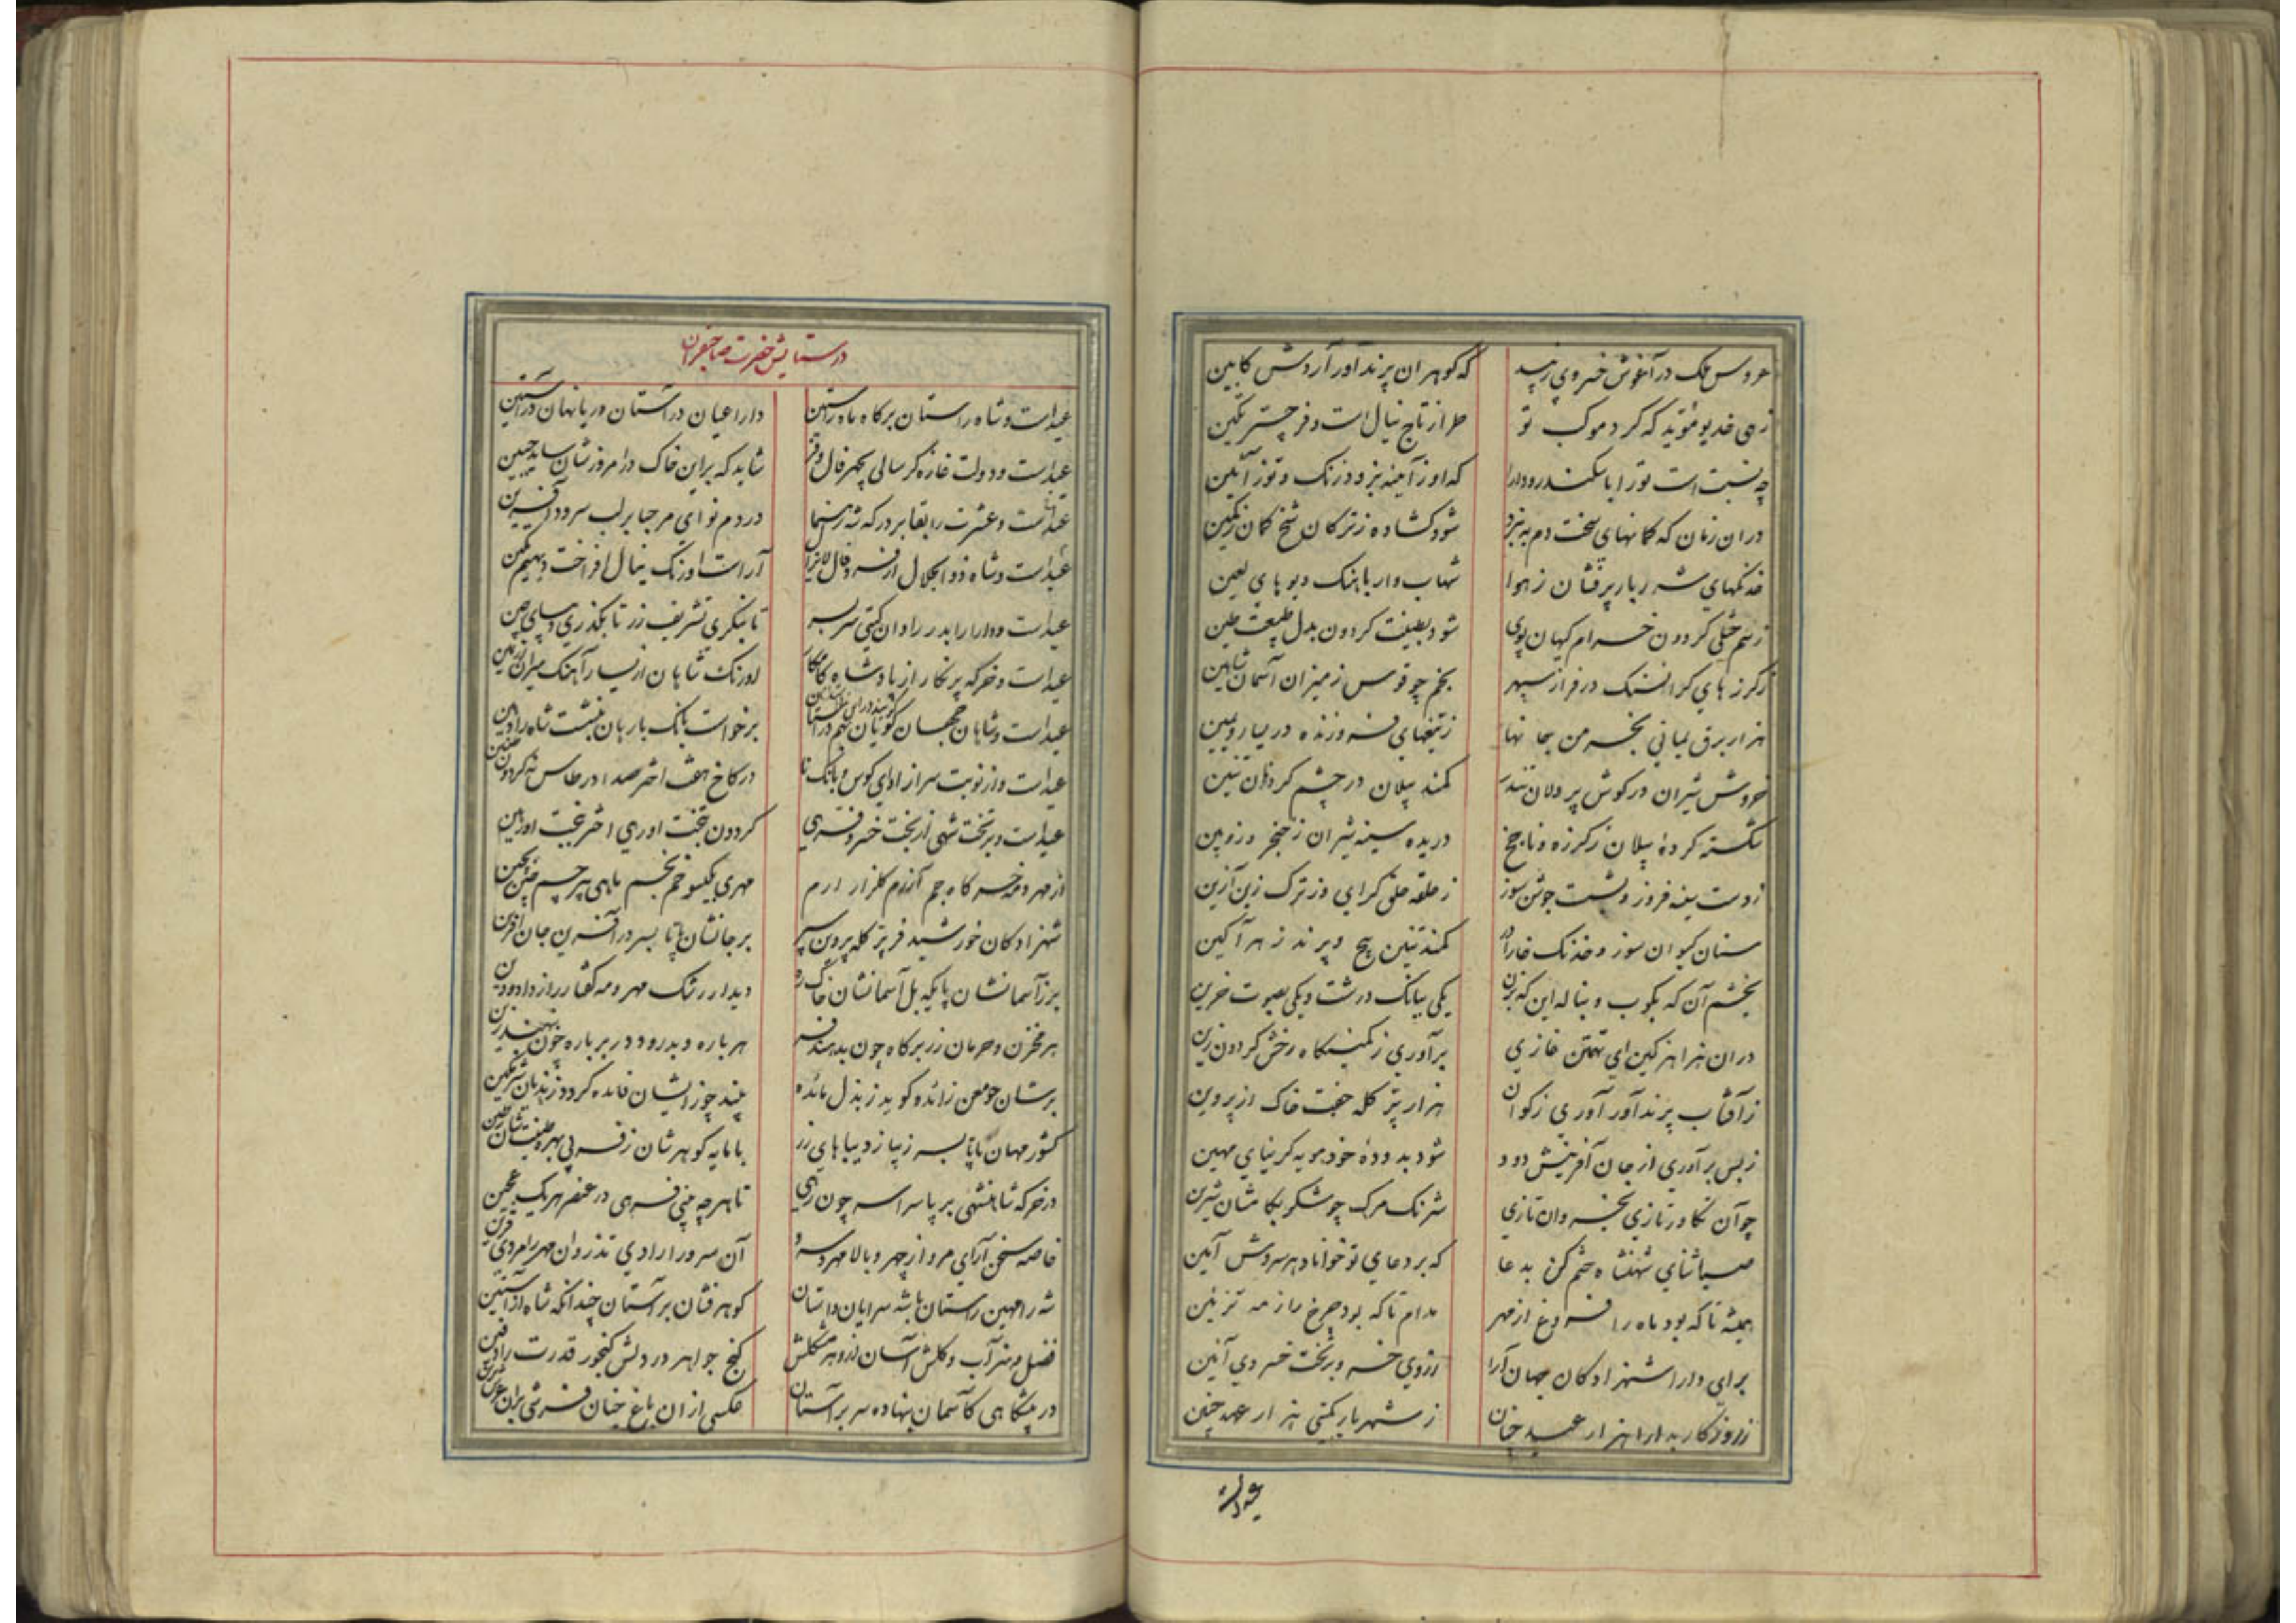 عروس ملک در آغوش خسروی زیبد که گوهر ان پرند آور آردش کابین
زهی خدیو مؤید که گرد موکب تو طراز تاج نیال است و فر چتر تکین
چه نسبت است تو را با سکندر و دارا که او ز آینه بزدود زنگ و تو ز آیین
در ان زمان که کمانهای سخت دم به نبرد شود گشاده ز ترکان شخ کمان ز کمین
خدنگهای شرربار پرفشان ز هوا شهاب وار باهنگ دیوهای لعین
ز سم ختلی گردون خرام کیهان پوی شود بطینت گردون بدل طبیعت طین
ز گرزهای گران سنگ در فراز سپهر بخم چو قوس ز میزان آسمان شاهین
هزار برق یمانی بخرمن جانها ز تیغهای فروزنده در یسار و یمین
خروش شیران در گوش پر دلان تندر کمند پیلان در چشم گردنان تنین
شکسته گرده پیلان ز گرزه و ناچخ دریده سینه شیران ز خنجر و زوپین
ز دست بیضه فروز و بشست جوشن سوز ز حلقه حلق گرای و ز ترک زین آزین
سنان کیوان سوز و خدنگ خارا در کمند تنین پیچ و پرند زهر آگین
بخشم آن که بکوب و بناله این که بزن یکی ببانگ درشت و یکی بصوت حزین
در ان هزاهز کین ای تهمتن غازی بر آوری ز کمینگاه رخش گردون زین
ز آفتاب پرند آور آوری ز کوان هزار پتر کله جفت خاک از پروین
ز بس بر آوری از جان آفرینش دود شود بدوده خود مویه گر نیای مهین
چو آن تکاور تازی بخسروان تازی شرنگ مرگ چو شکر بکامشان شیرین
صبا ثنای شهنشاه ختم کن بدعا که بر دعای تو خواناد هر سروش آمین
همیشه تا که بود ماه را فروغ از مهر مدام تا که بود چرخ را ز مه تزیین
برای دارا شهزادگان جهان آرا ز روی خسرو بر تخت خسروی آیین
ز روزگار بدارا هزار عید چنان ز شهریار بگیتی هزار عهد چنین
عید است
در ستایش حضرت صاحبقران
عید است و شاه راستان بر گاه ماه راستین دارا عیان در آستان دریا نهان در آستین
عید است و دولت غازه گر سالی بچهر فال و فر شاید که بر این خاک در امروز شان ساید جبین
عید است و عشرت رهنما بر درگه شه ز هر دم نوای مرحبا بر لب سرود آفرین
عید است و شاه ذو الجلال از فر و فال آراست اورنگ ینال افراخت دیهیم تکین
عید است و دارا را بدر رادان گیتی سر بسر تا بنگری تشریف زر تا بگذری دیبای چین
عید است و خرگه پر نگار از پادشاه کامگار اورنگ شاهان از یسار آهنگ میران از یمین
عید است و شاهان جهان گویان برخواست بانگ بار هان بنشست شاه راد هین
عید است و از نوبت سرا ز اوای کوس و بانگ نا در کاخ هفت اختر صدا در طاس نه گردون طنین
عید است و بر تخت شهی از بخت خسرو فرهی گردون بتخت اوره ی اختر ببخت اورهین
از مهر و مه خرگاه جم آزرم گلزار ارم مهری بگیسو خم بخم ماهی بپرچم چین بچین
شهزادگان خورشید فر پتر کله پروین سپر بر جانشان پا تا بسر در آفرین جان آفرین
برز آسمانشان پایگه بل آسمانشان خاک ره دیدار رشک مهر و مه گفتار راز داد و دین
هر مخزن و هر کان زر بر گاه چون بدهند فر هر باره و بدرود در بر باره چون نهند زین
کشور مهان پا تا بسر زیبا ز دیباهای زر با مایه گوهرشان ز فر بی بهره طینتشان ز طین
در خرگه شاهنشهی بر پا سراسر چون رهی تا هر چه بینی فرهی در عنصر هر یک عجین
خاصه سخن آرای مرو از چهر و بالا مهر و سرو آن سرو را رادی تذرو ان مهر را مردی قرین
شه را مهین راستان با شه سرایان داستان گوهرفشان بر آستان چندانکه شاه از آستین
فضل و هنر آب و گلش آسان از و هر مشکلش گنج جواهر در دلش گنجور قدرت را دفین
در پیشگاهی کاسمان بنهاده سر بر آستان عکسی از ان باغ جنان فرشی بر ان عرش برین